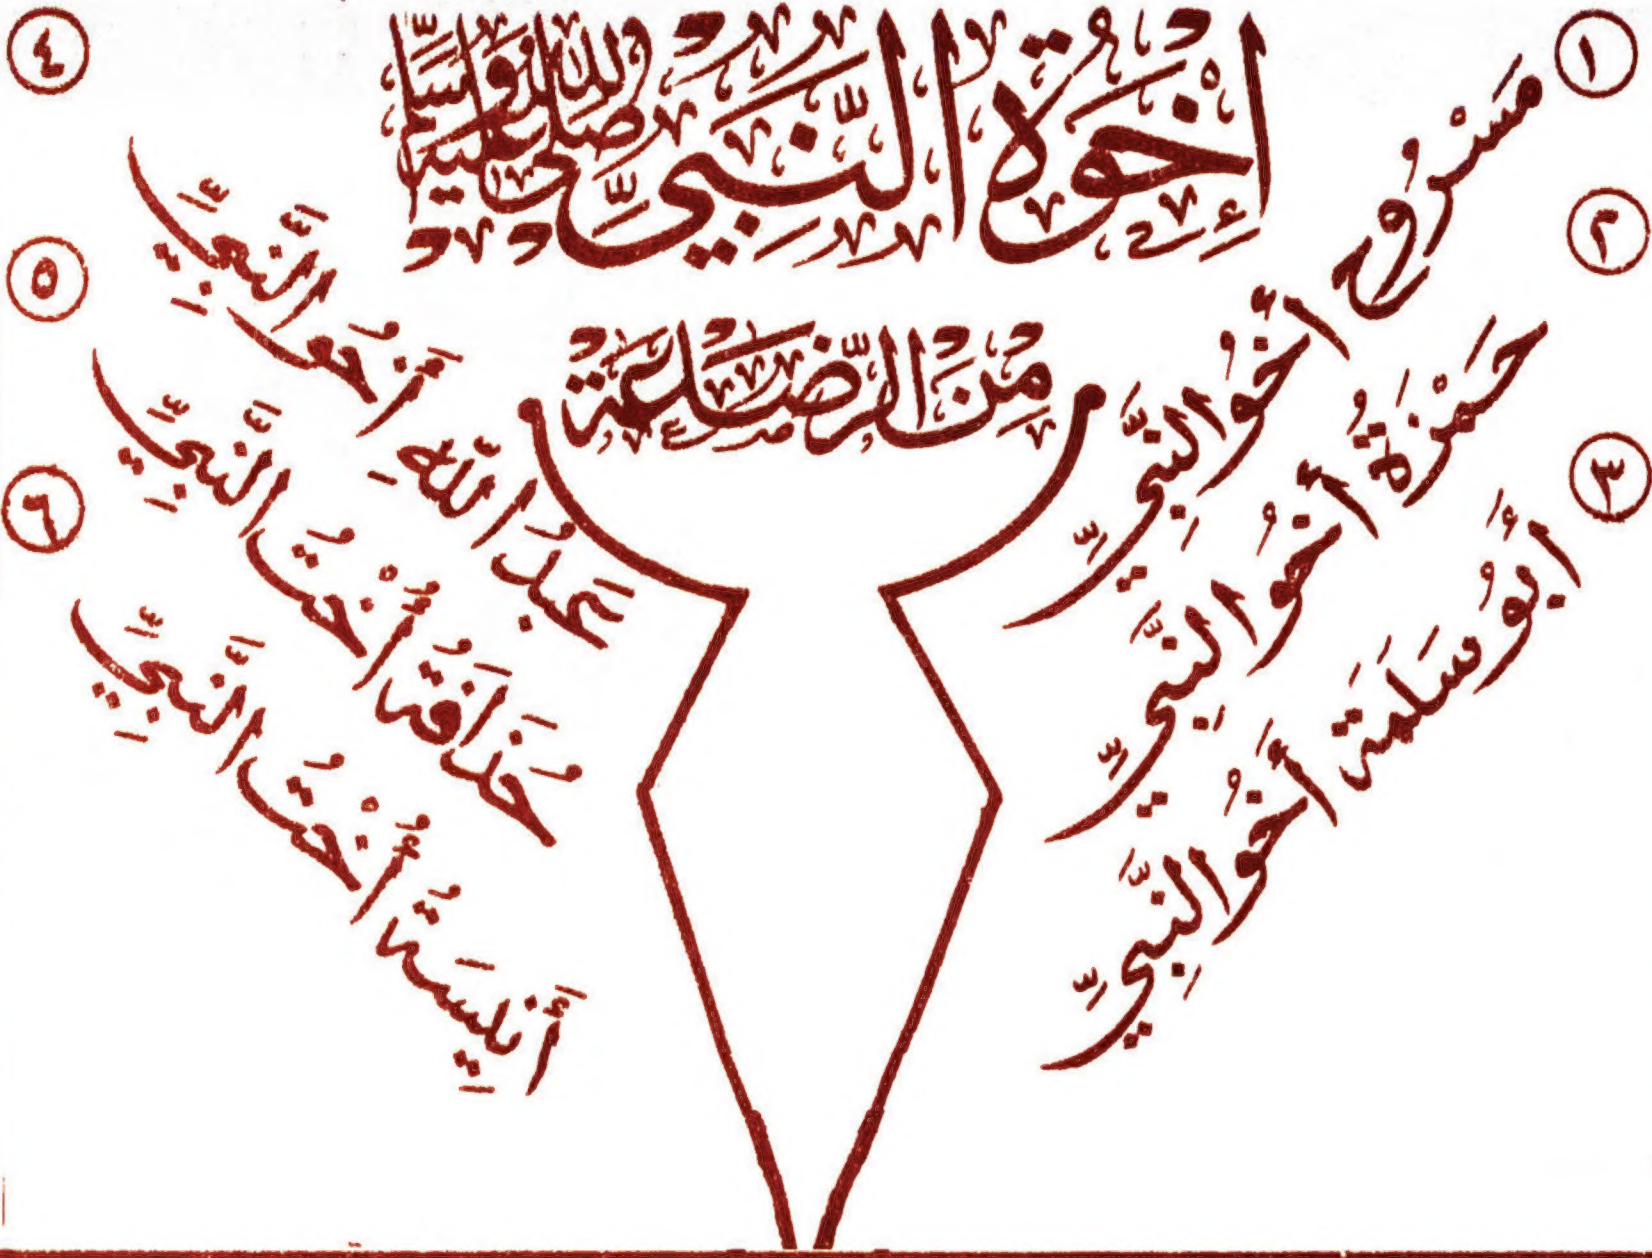 إِخْوَةُ النَّبِيِّ صَلَّى اللهُ عَلَيْهِ وَسَلَّمَ
مِنَ الرَّضَاعَةِ
١
مَسْرُوق أَخُو النَّبِيِّ
٢
حَمْزَةُ أَخُو النَّبِيِّ
٣
أَبُو سَلَمَة أَخُو النَّبِيِّ
٤
عَبدُ اللَّهِ أَخُو النَّبِيِّ
٥
حُذَافَةُ أُخْتُ النَّبِيِّ
٦
أَنِيسَةُ أُخْتُ النَّبِيِّ